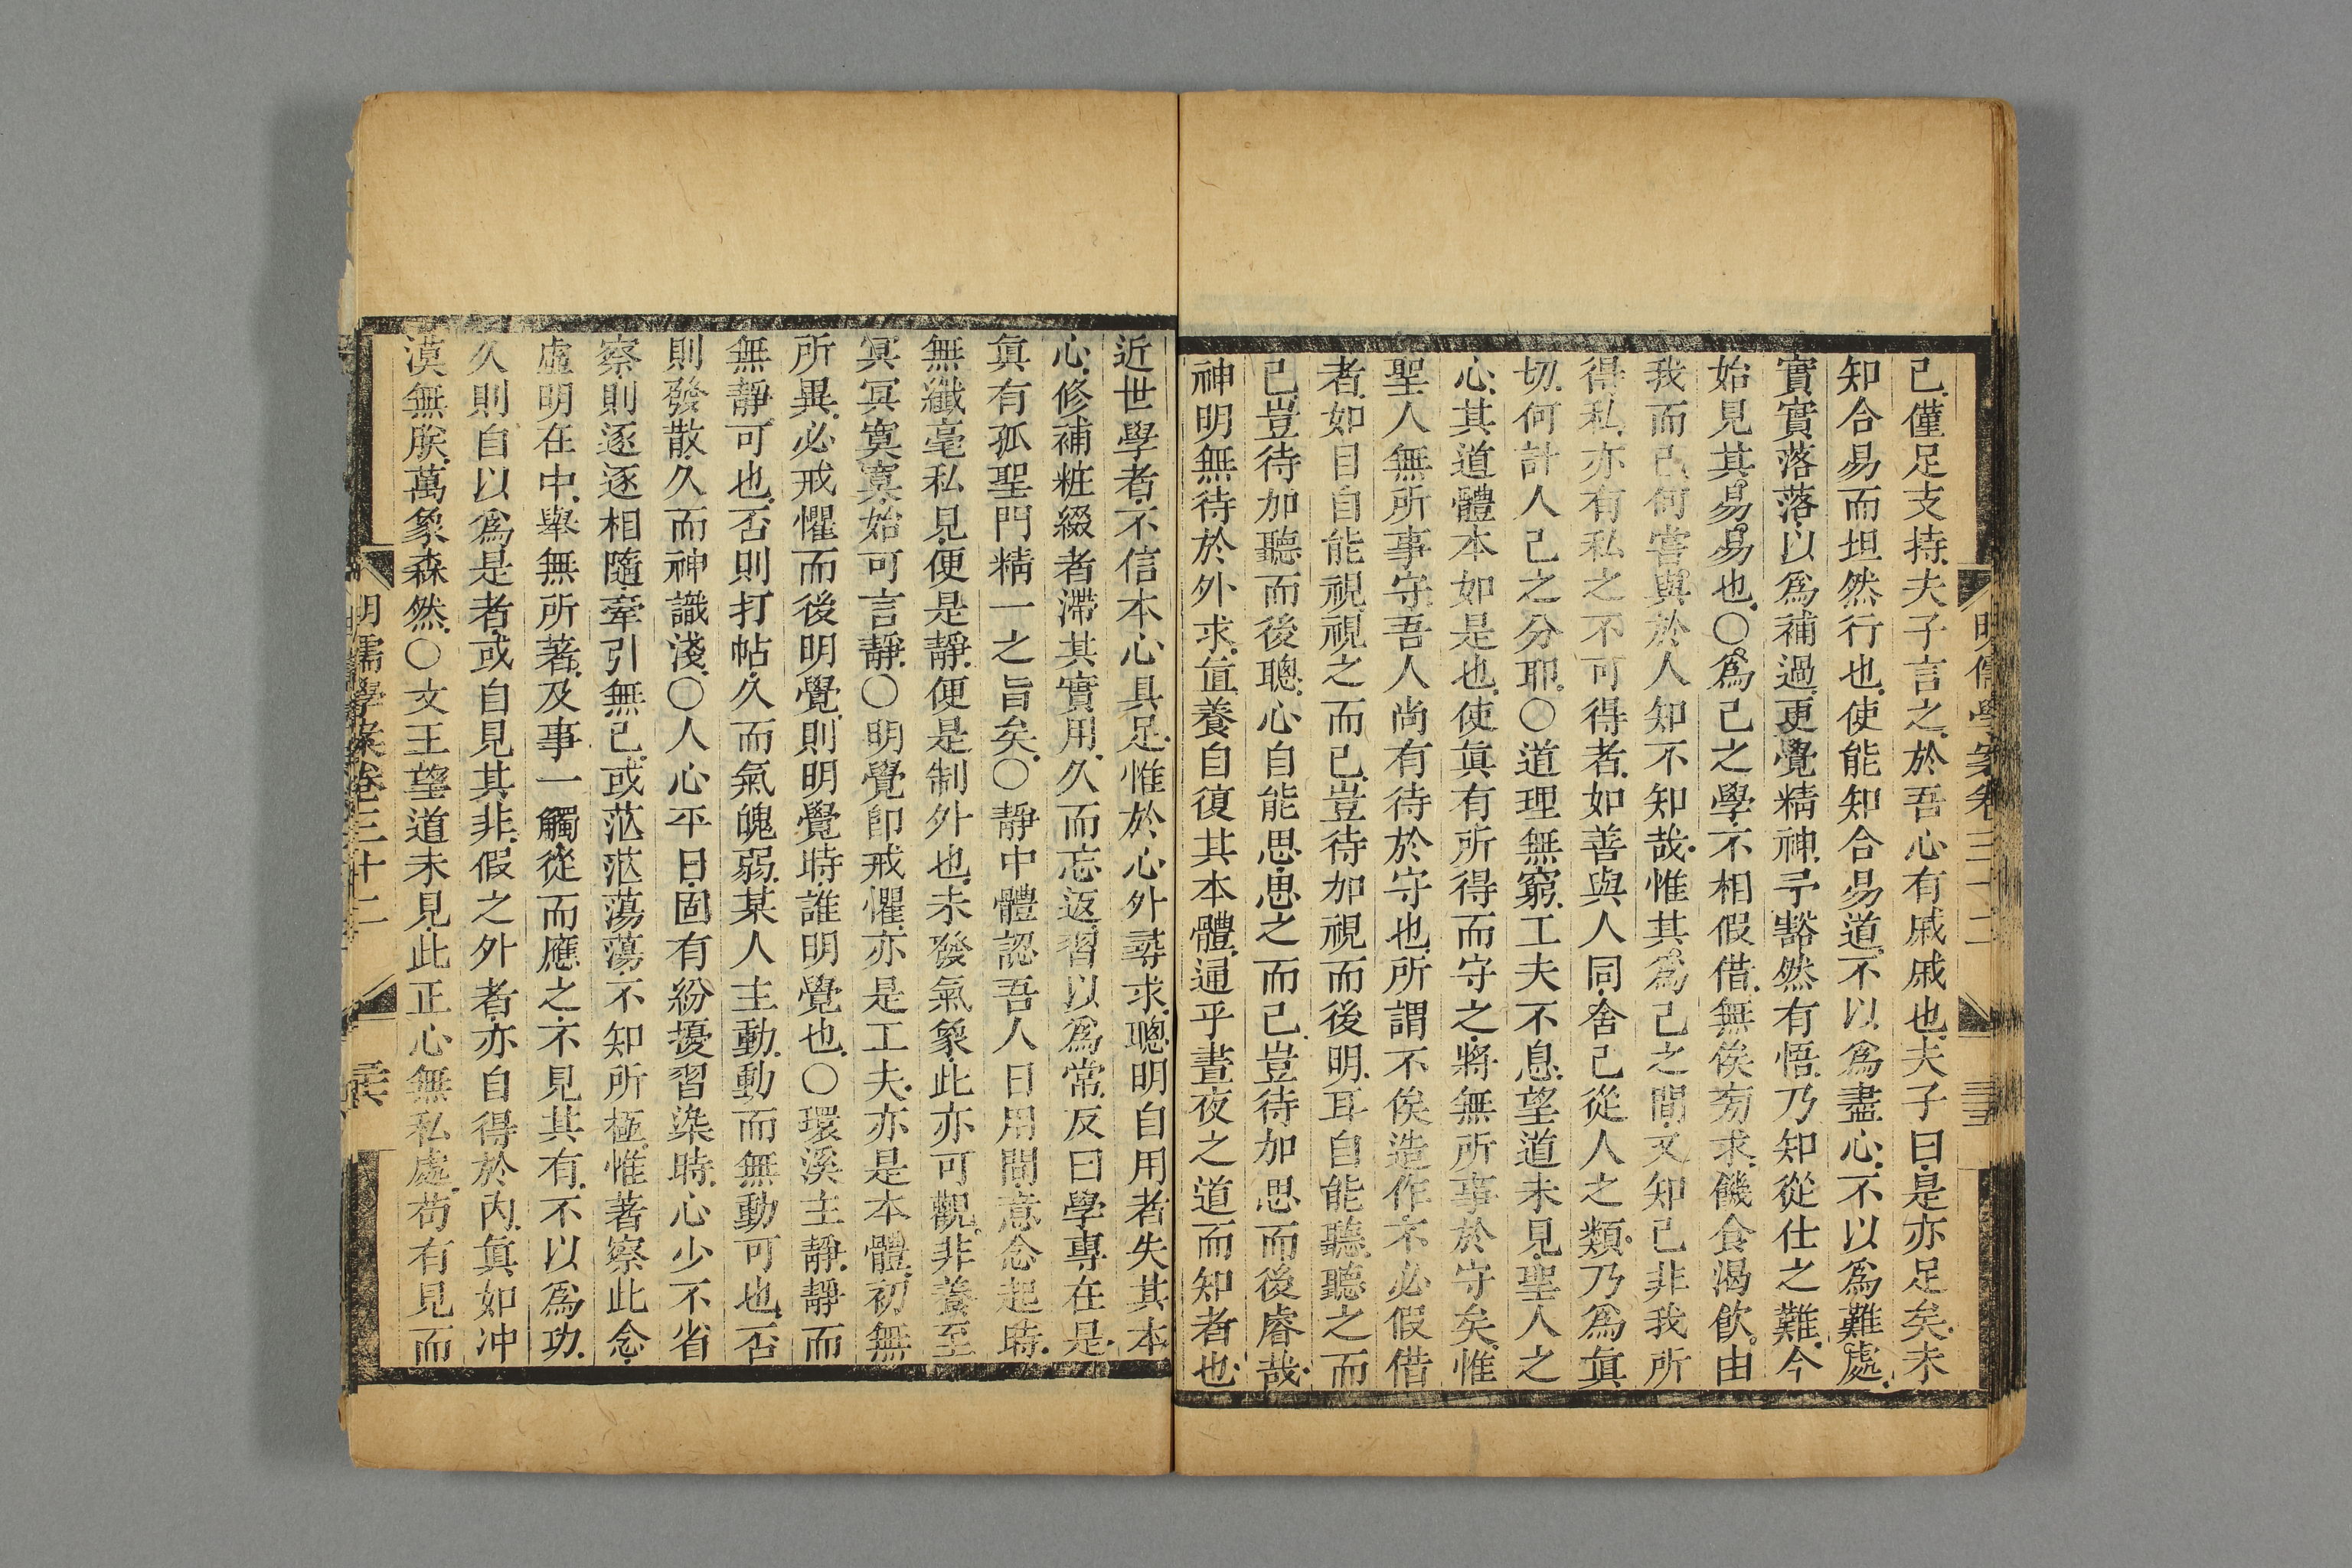 己僅足支持夫子言之於吾心有戚戚也夫子曰是亦足矣未
知合易而坦然行也使能知合易道不以爲盡心不以爲難處
實實落落以爲補過更覺精神予豁然有悟乃知從仕之難今
始見其易易也〇爲己之學不相假借無俟旁求饑食渴飮由
我而已何嘗與於人知不知哉惟其爲己之間又知己非我所
得私亦有私之不可得者如善與人同舍己從人之類乃爲眞
切何計人己之分耶〇道理無窮工夫不息望道未見聖人之
心其道體本如是也使眞有所得而守之將無所事於守矣惟
聖人無所事守吾人尚有待於守也所謂不俟造作不必假借
者如目自能視視之而已豈待加視而後明耳自能聽聽之而
已豈待加聽而後聰心自能思思之而已豈待加思而後睿哉
神明無待於外求直養自復其本體通乎晝夜之道而知者也
近世學者不信本心具足惟於心外尋求聰明自用者失其本
心修補粧綴者滯其實用久而忘返習以爲常反曰學專在是
眞有孤聖門精一之旨矣〇靜中體認吾人日用間意念起時
無纖毫私見便是靜便是制外也未發氣象此亦可觀非養至
冥冥寞寞始可言靜〇明覺卽戒懼亦是工夫亦是本體初無
所異必戒懼而後明覺則明覺時誰明覺也〇環溪主靜靜而
無靜可也否則打帖久而氣魄弱某人主動動而無動可也否
則發散久而神識淺〇人心平日固有紛擾習染時心少不省
察則逐逐相隨牽引無已或茫茫蕩蕩不知所極惟著察此念
虛明在中舉無所著及事一觸從而應之不見其有不以爲功
久則自以爲是者或自見其非假之外者亦自得於內眞如冲
漠無朕萬象森然〇文王望道未見此正心無私處苟有見而
明儒學案卷三十二